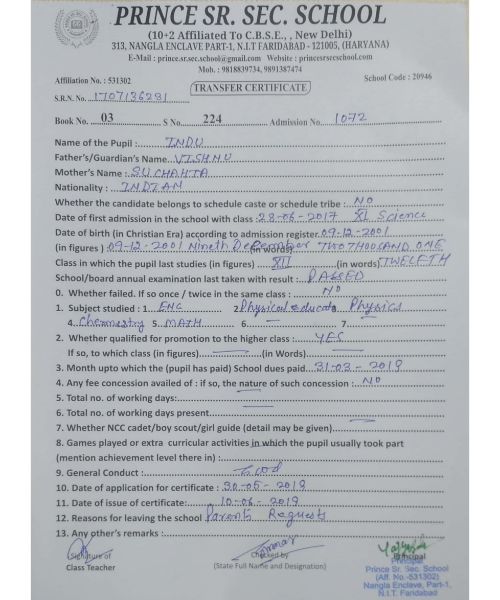 PRINCE SR. SEC. SCHOOL
(10+2 Affiliated To C.B.S.E., , New Delhi)
313, NANGLA ENCLAVE PART-1, N.I.T FARIDABAD - 121005, (HARYANA)
E-Mail : prince.sr.sec.school@gmail.com Website : princesrsecschool.com
Mob. : 9818839734, 9891387474
Affiliation No. : 531302 School Code : 20946
TRANSFER CERTIFICATE
S.R.N. No. 1707136281
Book No. 03 S No. 224 Admission No. 1072
Name of the Pupil : INDU
Father's/Guardian's Name VISHNU
Mother's Name : SUCHAHTA
Nationality : INDIAN
Whether the candidate belongs to schedule caste or schedule tribe : NO
Date of first admission in the school with class : 28-06-2017 XI Science
Date of birth (in Christian Era) according to admission register. 09-12-2001
(in figures ) 09-12-2001 (in words) Nineth December TWOTHOUSAND ONE
Class in which the pupil last studies (in figures) XII (in words) TWELETH
School/board annual examination last taken with result : PASSED
0. Whether failed. If so once / twice in the same class : NO
1. Subject studied : 1. ENG 2. Physical educato Physics
4. Chemestry 5. MATH 6. 7.
2. Whether qualified for promotion to the higher class : YES
If so, to which class (in figures) (in Words)
3. Month upto which the (pupil has paid) School dues paid. 31-03-2019
4. Any fee concession availed of : if so, the nature of such concession : NO
5. Total no. of working days:
6. Total no. of working days present
7. Whether NCC cadet/boy scout/girl guide (detail may be given)
8. Games played or extra curricular activities in which the pupil usually took part
(mention achievement level there in) :
9. General Conduct : Good
10. Date of application for certificate : 30-05-2019
11. Date of issue of certificate: 10-06-2019
12. Reasons for leaving the school Parents Request
13. Any other's remarks :
Signature of Checked by Principal
Class Teacher (State Full Name and Designation)
Principal
Prince Sr. Sec. School
(Aff. No.-531302)
Nangla Enclave, Part-1,
N.I.T. Faridabad